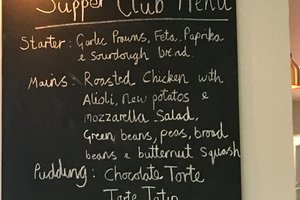 Supper Club Menu
Starter: Garlic Prawns, Feta, Paprika
e Sourdough bread.
Mains: Roasted Chicken with
Alioli, New potatos e
mozzarella Salad,
Green beans, peas, broad
beans e butternut Squash
Pudding: Chocolate Torte
Tarte Tatin